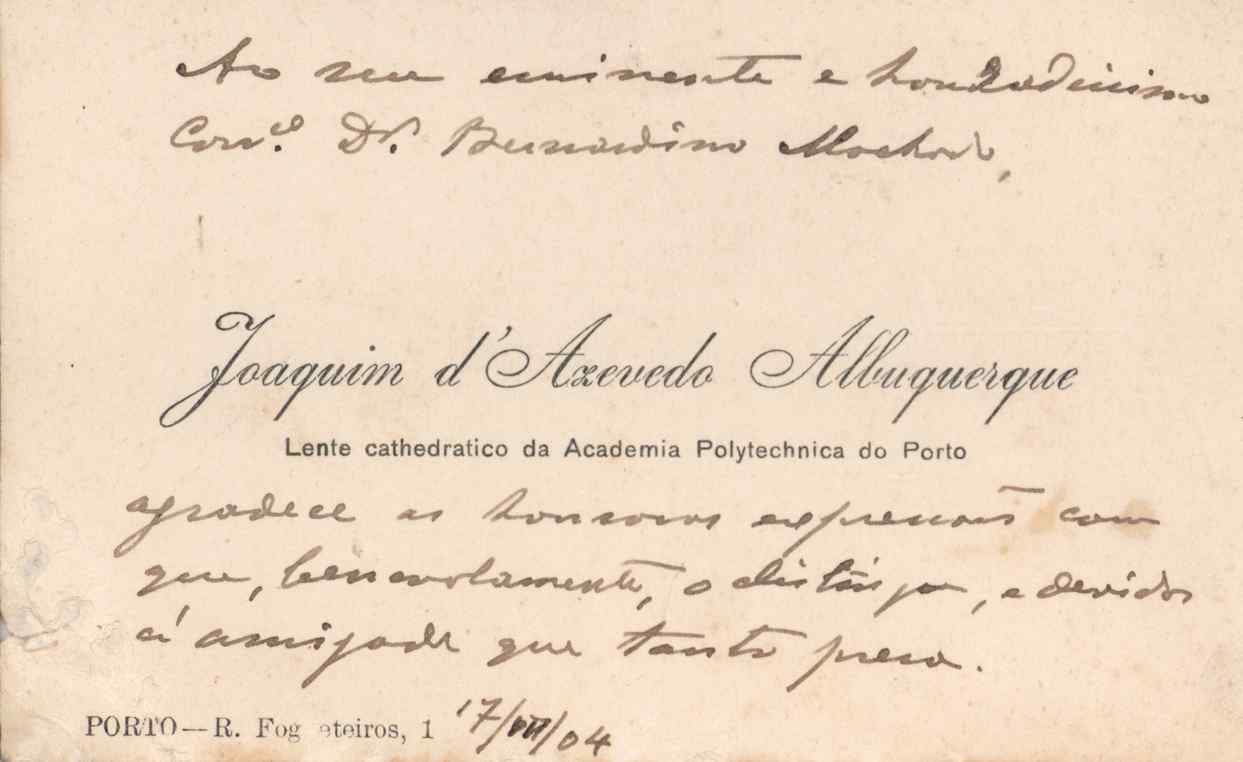 Ao seu eminente e honradissimo
Con.º Dr. Bernardino Machado,
Joaquim d'Azevedo Albuquerque
Lente cathedratico da Academia Polytechnica do Porto
agradece as honrosas expressões com
que, benevolamente, o distingue, e devidas
á amizade que tanto preza.
PORTO—R. Fog eteiros, 1 17/VII/04